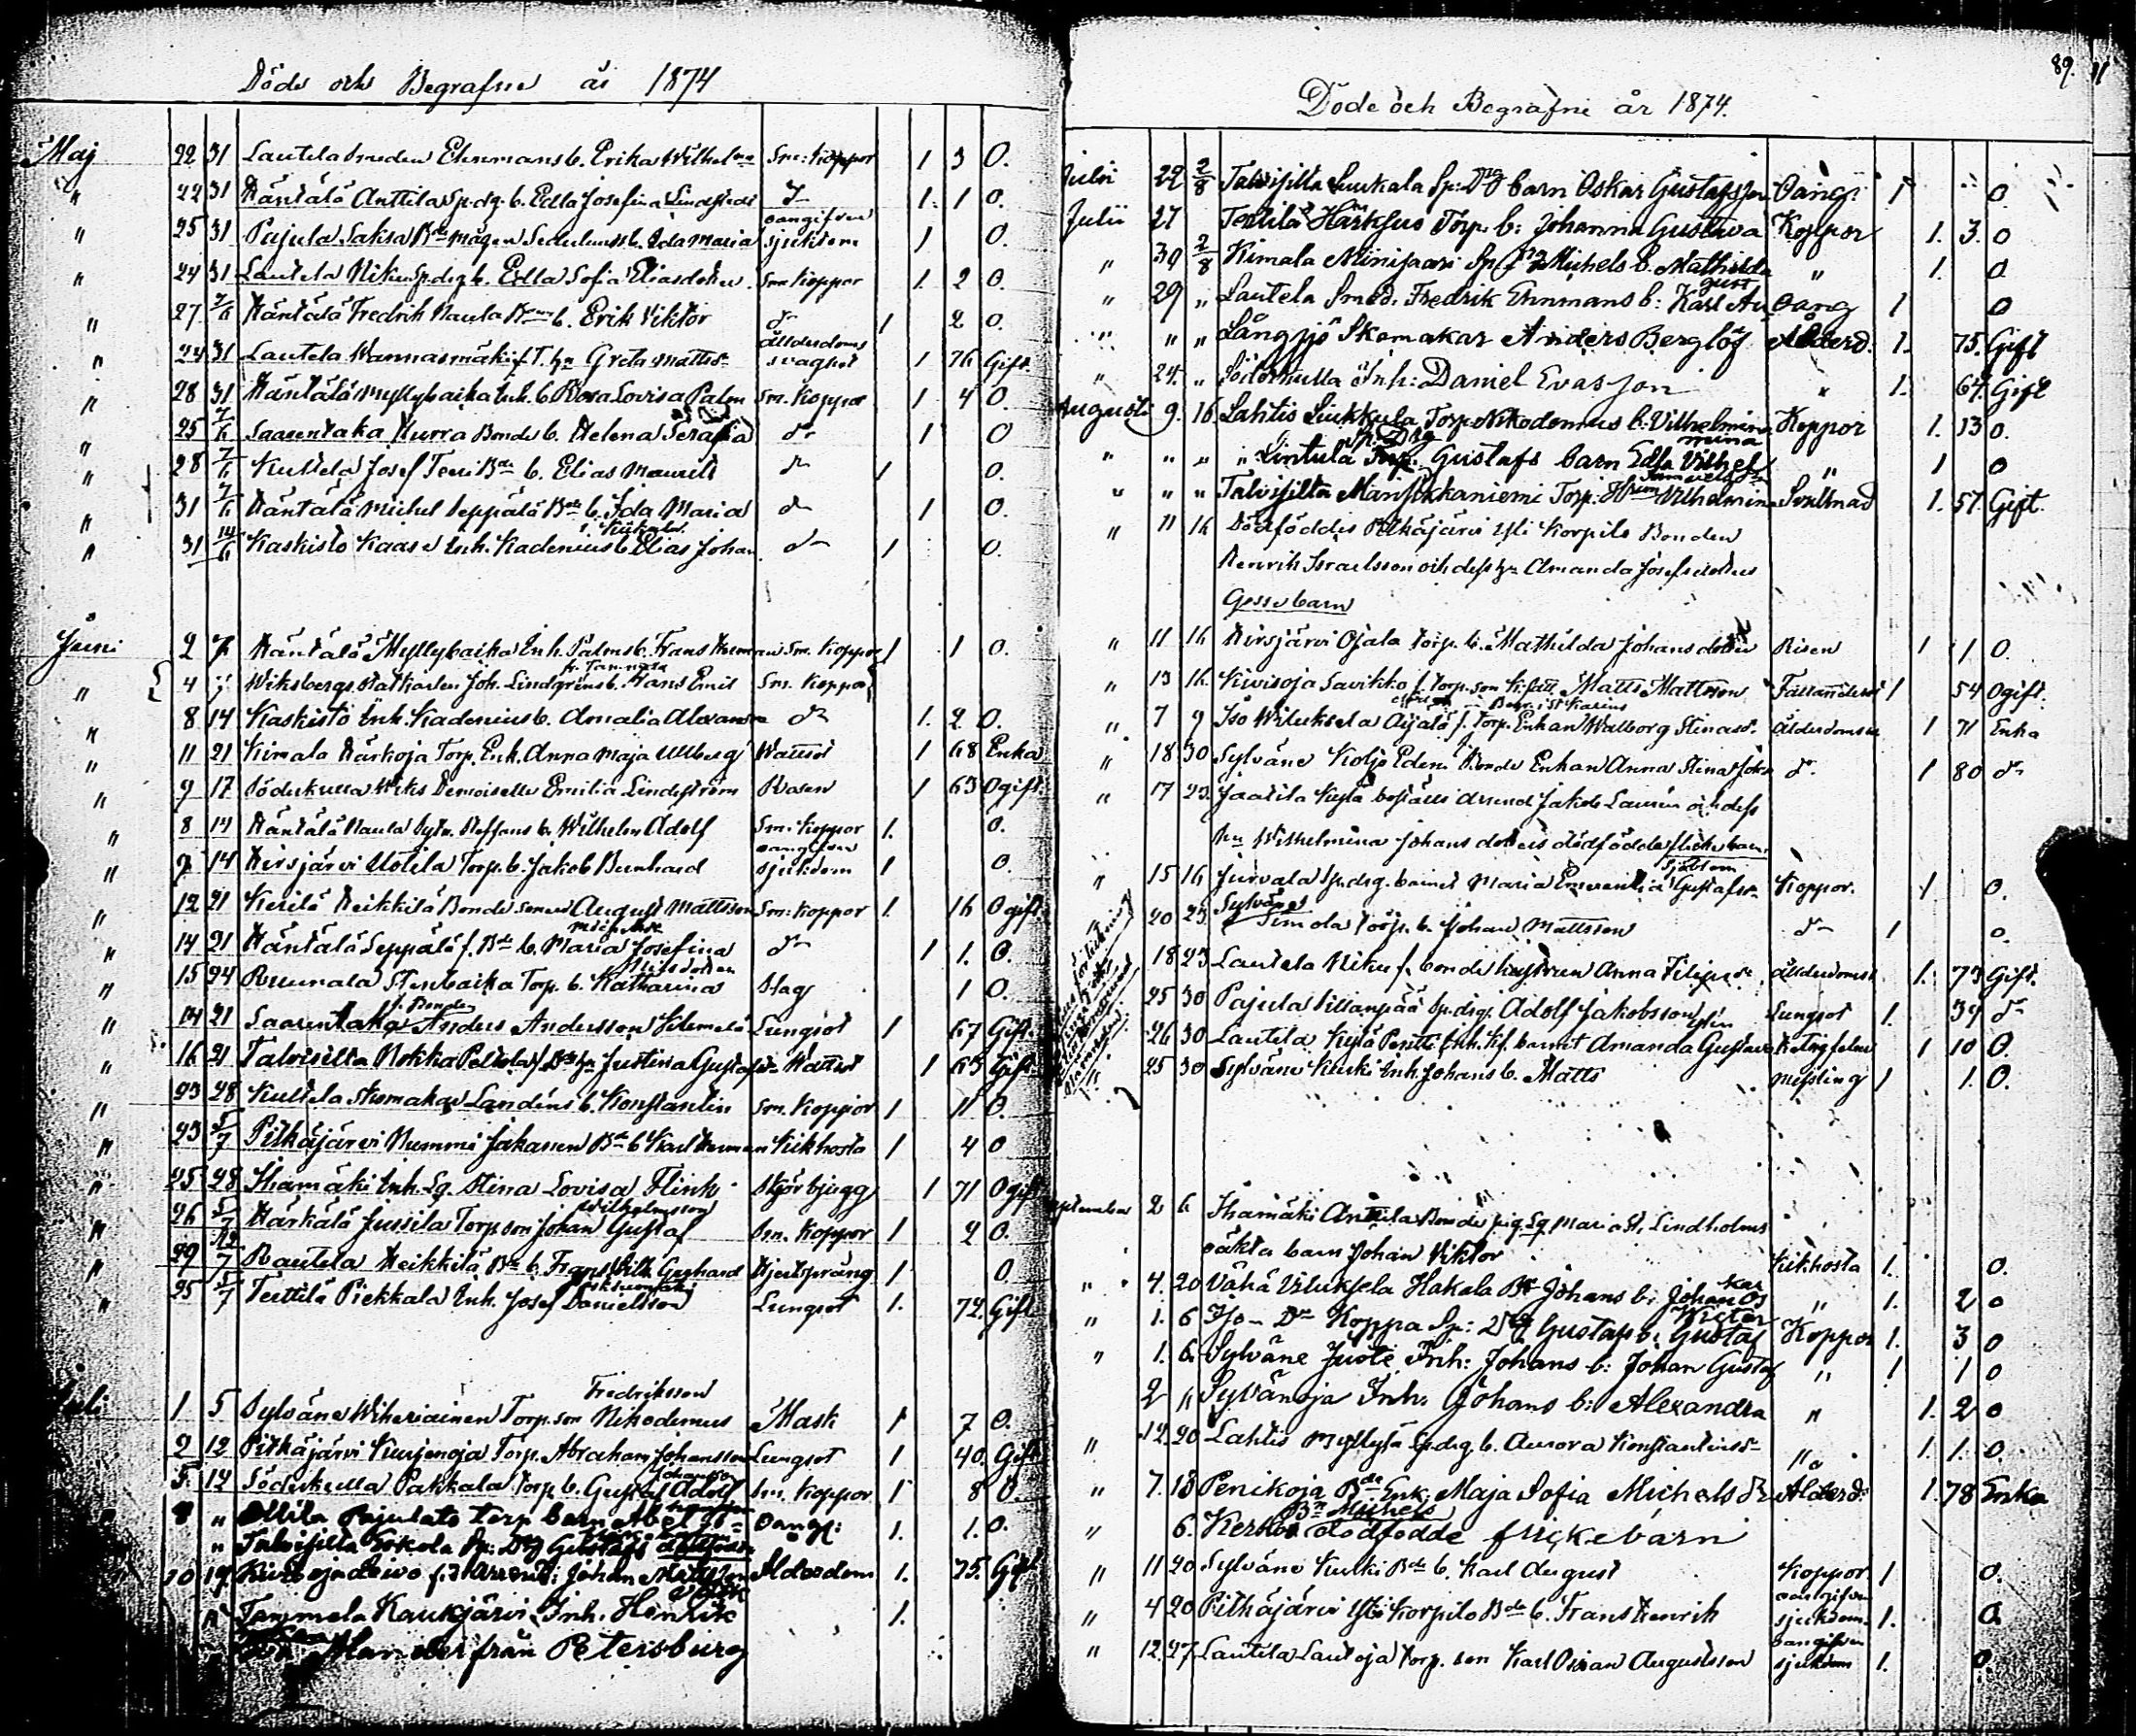 Döde och Begrafne år 1874
Maj 22 31 Lautela smeden Ehnmans b. Erika Wilhelma Sm: Koppor 1 3 O.
" 22 31 Häntälä Anttila Sp.dg. b. Edla Josefina Lindstedt d:o 1. 1 O.
oangifven
" 25 31 Pajula Saksa Bde mågen b. Ida Maria sjukdom 1 O.
" 24 31 Lautela Niku Sp.drg b. Edla Sofia Eliasdotter. Sm Koppor 1. 2 O.
" 27 7/6 Häntälä Fredrik Naula b. Erik Viktor d:o 1 2 O.
ålderdoms
" 24 31 Lautela Wannasmäki f. T. hu Greta Mattsd:r svaghet 1 76 Gift.
" 28 31 Häntälä Myllybacka Inh. b. Rosa Lovisa Palm Sm. Koppor 1 4 O.
" 25 7/6 Saarentaka Hurra Bonde b. Helena Serafia d:o 1 O
" 28 7/6 Kultela Josef Teeri Bde b. Elias Maurits d:o 1 O.
" 31 7/6 Häntälä Michel Seppälä Bde b. Ida Maria d:o 1 O.
" 31 14/6 Kaskisto Kaase Inh. Kadenius b. Elias Johan d:o 1 O.
Juni 2 7 Häntälä Myllybacka Inh. Palms b. Frans Herman Sm. Koppor 1 1 O.
fr. Tammela
" 4 7 Wiksbergs Statkarlen Joh. Lindgrens b. Frans Emil Sm. Koppor
" 8 14 Kaskisto Inh. Kadenius b. Amalia Alexandra d:o 1. 2 O.
" 11 21 Kimala Härkoja Torp. Enk. Anna Maja Ullberg Wattsot 1 68 Enka
" 9 17 Söderkulla Wiks Demoiselle Emilia Lindström Rosen 1 63 Ogift.
" 8 14 Häntälä Naula Sytn. Staffans b. Wilhelm Adolf Sm: Koppor 1. O.
oangifven
" 7 14 Hirsjärvi Uotila Torp. b. Jakob Bernhard sjukdom 1 O.
" 12 21 Kerilä Heikkilä Bonde sonen August Mattsson Sm: Koppor 1. 16 Ogift.
" 14 21 Häntälä Seppälä f. Bde b. Maria Josefina d:o 1 1. O.
" 15 24 Ruunala Stenbacka Torp. b. Katharina Slag 1 O.
f. Bonden
" 14 21 Saarentaka Anders Andersson Lungsot 1 67 Gift.
" 16 21 Talvisilta Nokka Peltola f. hu Justina Gustafsd:r Wattsot 1 63 Gift.
" 23 28 Kultela Skomakar Landéns b. Konstantin Sm. Koppor 1 11 O.
" 23 5/7 Pitkäjärvi Nummi Jakanen Bde b. Karl Herman Kikhosta 1 4 O
" 25 28 Ihamäki Inh. Sg. Stina Lovisa Flink Skörbjugg 1 71 Ogift
Wilhelmsson
" 26 5/7 Härkälä Jussila Torp son Johan Gustaf Sm. Koppor 1 2 O.
" 29 12/7 Rautela Heikkilä Bde b. Frans Vilh. Gerhard Hjertspräng 1 O
" 25 5/7 Terttilä Piekkala Inh. Josef Danielsson Lungsot 1. 72 Gift
Fredriksson
Juli 1 5 Sylväne Wiheriäinen Torp. son Nikodemus Mask 1 7 O.
2 12 Pitkäjärvi Kurjenoja Torp. Abraham Johansson Lungsot 1 40. Gift
5 12 Söderkulla Pakkala Torp b. Gustaf Adolf Sm. Koppor 1 8 O.
8 " Ollila Pajulato Torp barn Abel Oangf: 1. 1. O.
" Talvisilta Sp: Drg Gustafs dödfödda
10 19 f. d. Arrend: Johan Mattsson Ålderdom 1. 75. Gift
" Tammela Kaukjärvi Inh. Henrik 1.
från Petersburg
89.
Döde och Begrafne år 1874.
Julii 22 2/8 Talvisilta Liukala Sp: Drg barn Oskar Gustafsson Oang: 1 O.
Julii 27 Terttilä Härkjus Torp. b: Johanna Gustava Koppor 1. 3. O
" 30 2/8 Kimala Minisaari Sp. Drg Michels b. Mathilda " 1. O
gust
" 29 " Lautela Smed. Fredrik Ehnmans b: Karl Au Oang 1 O
" " " Långsjö Skomakar Anders Berglöf Ålderd. 1. 75. Gift
" 24. " Söderkulla Inh: Daniel Evasson " 1. 64. Gift
Augusti 9. 16 Lahtis Liukkula Torp. Nikodemus b. Vilhelmina Koppor 1. 13 O.
Sp: Drg mina
" " " " Lintula Gustafs barn Edla Vilhel " 1 O
" " " Talvisilta Mansikkaniemi Torp: Vilhelmina Svullnad 1. 57. Gift.
" 11 16 Dödföddis Pitkäjärvi Yli Korpilo Bonden
Henrik Israelsson och dess hu Amanda Josefsdotter
Gossebarn
" 11 16 Hirsjärvi Ojala Torp. b. Mathilda Johansdotter Risen 1 1 O.
" 13 16. Kivisoja Savikko f. Torp. son Matts Mattsson Fallandesot 1 54 Ogift.
" 7 9 Iso Wiluksela Äijälä f. Torp. Enkan Walborg Stinasd. Ålderdoms 1 71 Enka
" 18 30 Sylväne Kolju Eden Bonde Enkan Anna Stina d:o 1 80 d:o
" 17 23. Jaatila Kylä boställs arrend Jakob Laurén och dess
hu Wilhelmina Johansdotters dödfödda flickebarn.
Sjöblom
" 15 16 Jurvala Sp.drg. barnet Maria Emerentia Gustafsd:r Koppor. 1 O.
Sylvänes
" 20 23 Simola Torp. b. Johan Mattsson d:o 1 O.
" 18 23 Lautela Niku f. bonde hustrun Anna Filipsd:r ålderdoms 1. 73 Gift.
25 30 Pajula Sillanpää Sp.drg. Adolf Jakobsson Lungsot 1. 34 d:o
26 30 Lautela Kylä Pentti Inh. barnet Amanda Gustava 1 10 O.
25 30 Sylväne Kurki Inh. Johans b. Matts messling 1 1. O.
September 2 6 Ihamäki Anttila Bonde pig. Maria St. Lindholms
oäkta barn Johan Viktor Kikhosta 1. O.
kar
" 4. 20 Vähä Viluksela Hakala Johans b: Johan Os " 1. 2 O
Victor
" 1. 6 Iso- D:o Koppa Sp: Drg Gustafs b: Gustaf Koppor 1. 3 O
" 1. 6. Sylväne Juoti Inh: Johans b: Johan Gustaf " 1 1 O
2 " Sylvänoja Inh. Johans b: Alexandra " 1. 2 O
" 12. 20 Lahtis Myllylä Sp.drg b. Aurora Konstantinsd:r " 1. 1. O.
" 7. 13 Penikoja Bde Enk: Maja Sofia Michelsd:r Ålderd: 1. 78 Enka
Bn Michels
" 6. dödfödde flickebarn
" 11 20 Sylväne Kurki Bde b. Karl August Koppor. 1 O.
oangifven
" 4 20 Pitkäjärvi Yli Korpilo Bde b. Frans Henrik sjukdom. 1. O.
oangifven
" 12. 27. Lautela Lautoja Torp. son Karl Oskar Augustsson sjukdom 1. O.